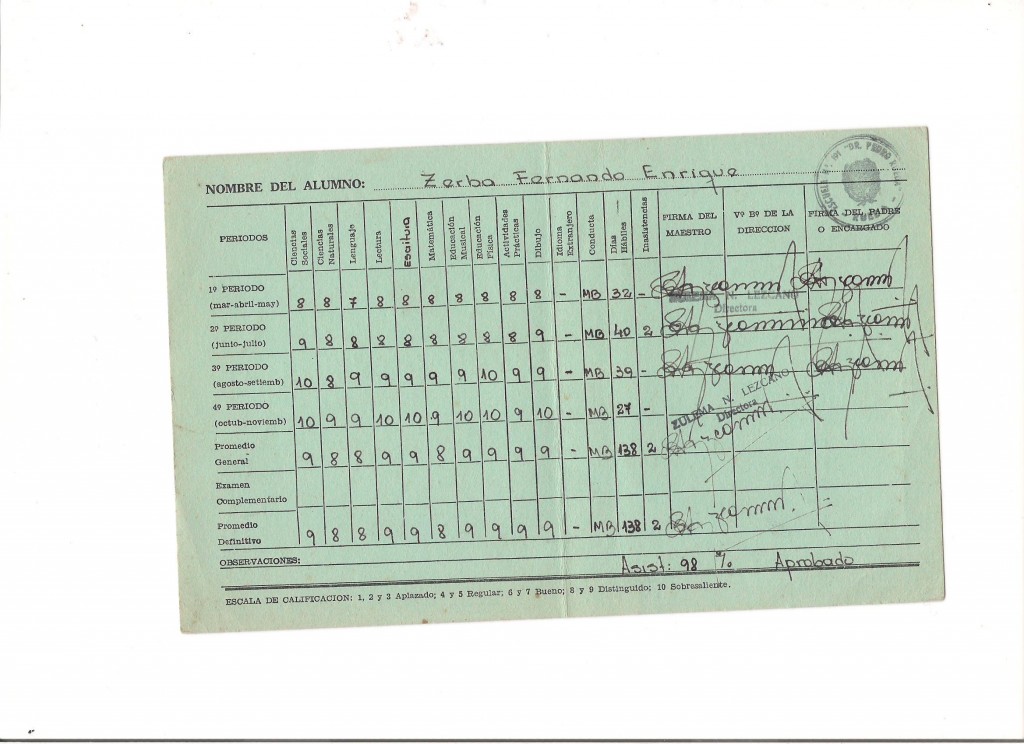 ESCUELA Nº 101 "DR. PEDRO
NOMBRE DEL ALUMNO: Zerba Fernando Enrique
PERIODOS Ciencias Sociales Ciencias Naturales Lenguaje Lectura Escritura Matemática Educación Musical Educación Física Actividades Prácticas Dibujo Idioma Extranjero Conducta Días Hábiles Inasistencias FIRMA DEL MAESTRO Vº Bº DE LA DIRECCION FIRMA DEL PADRE O ENCARGADO
1º PERIODO (mar-abril-may) 8 8 7 8 8 8 8 8 8 8 - MB 32 -
N. LEZCANO
Directora
2º PERIODO (junio-julio) 9 8 8 8 8 8 8 8 8 9 - MB 40 2
3º PERIODO (agosto-setiemb) 10 8 9 9 9 9 9 10 9 9 - MB 39 -
4º PERIODO (octub-noviemb) 10 9 9 10 10 9 10 10 9 10 - MB 27 -
ZULEMA N. LEZCANO
Directora
Promedio General 9 8 8 9 9 8 9 9 9 9 - MB 138 2
Examen Complementario
Promedio Definitivo 9 8 8 9 9 8 9 9 9 9 - MB 138 2
OBSERVACIONES: Asist: 98 % Aprobado
ESCALA DE CALIFICACION: 1, 2 y 3 Aplazado; 4 y 5 Regular; 6 y 7 Bueno; 8 y 9 Distinguido; 10 Sobresaliente.